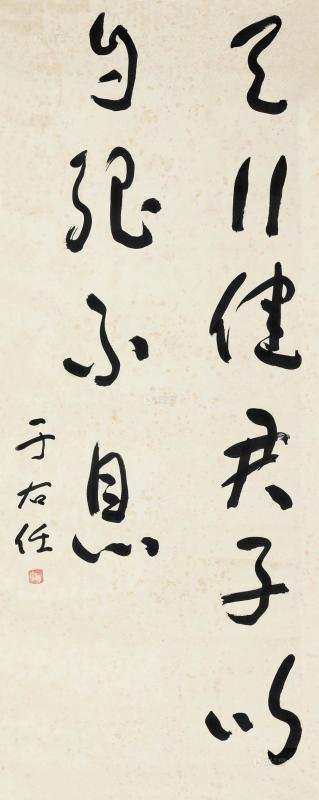 天行健君子以
自强不息
于右任